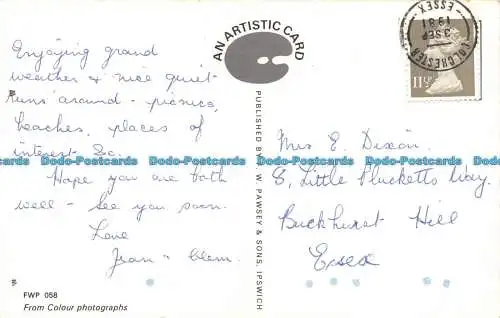 Enjoying grand
weather & nice quiet
runs around - picnics,
beaches, places of
interest &c.
Hope you are both
well - See you soon.
Love
Jean & Clem.
FWP 058
From Colour photographs
AN ARTISTIC CARD
PUBLISHED BY F. W. PAWSEY & SONS, IPSWICH
COLCHESTER
3 SEP
1981
- ESSEX -
11½P
Mrs E. Dixon.
8, Little Plucketts Way.
Buckhurst Hill
Essex
Dodo-Postcards Dodo-Postcards Dodo-Postcards Dodo-Postcards Dodo-Postcards